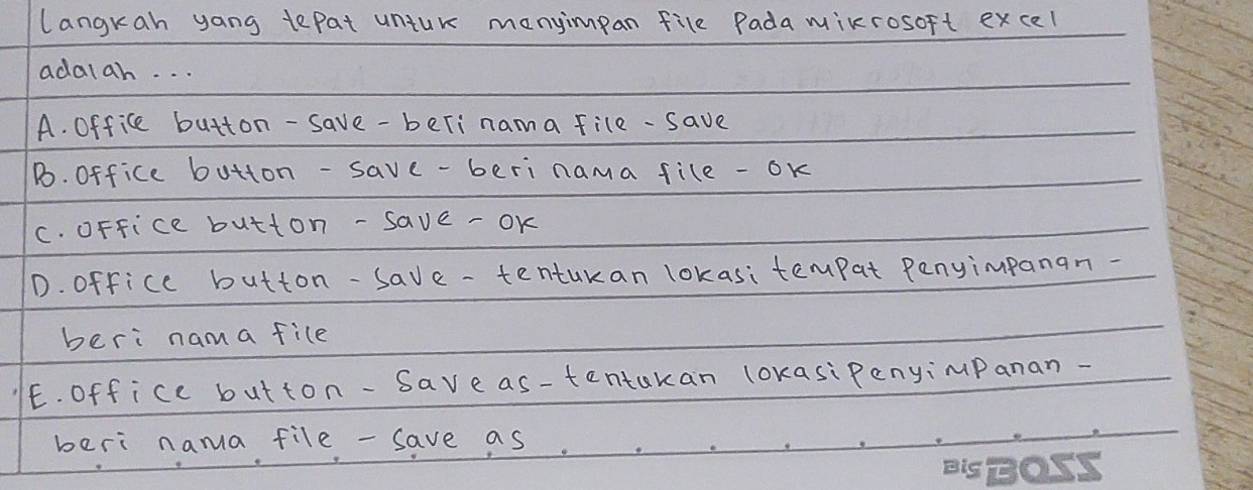 Langkah yang tepat untuk menyimpan file Pada mikrosoft excel
adalah ...
A. Office button - save - beri nama file - save
B. Office button - save - beri nama file - ok
C. Office button - save - ok
D. Office button - save - tentukan lokasi tempat Penyimpanan -
beri nama file
E. Office button - Save as - tentukan lokasi Penyimpanan -
beri nama file - save as
Big BOSS